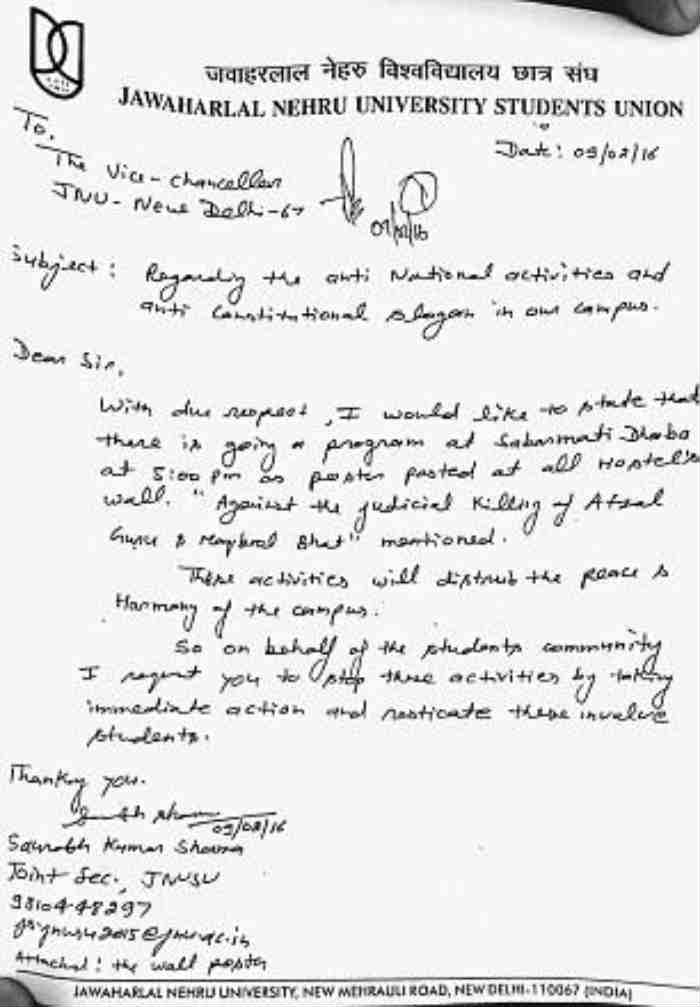 जवाहरलाल नेहरु विश्वविद्यालय छात्र संघ
JAWAHARLAL NEHRU UNIVERSITY STUDENTS UNION
To,
Date: 09/02/16
The Vice-chancellor
JNU- New Delhi-67
09/02/16
Subject: Regarding the anti National activities and
anti Constitutional slogan in our campus.
Dear Sir,
With due respect, I would like to state that
there is going a program at Sabarmati Dhaba
at 5:00 pm as poster pasted at all Hostel's
wall. "Against the judicial killing of Afzal
Guru & Maqbool Bhat" mentioned.
These activities will distrub the peace &
Harmony of the campus.
So on behalf of the students community
I request you to stop these activities by taking
immediate action and rusticate these involve
students.
Thanking you.
09/02/16
Saurabh Kumar Sharma
Joint Sec., JNUSU
9810448297
@jnu.ac.in
Attached: the wall poster
JAWAHARLAL NEHRU UNIVERSITY, NEW MEHRAULI ROAD, NEW DELHI-110067 (INDIA)